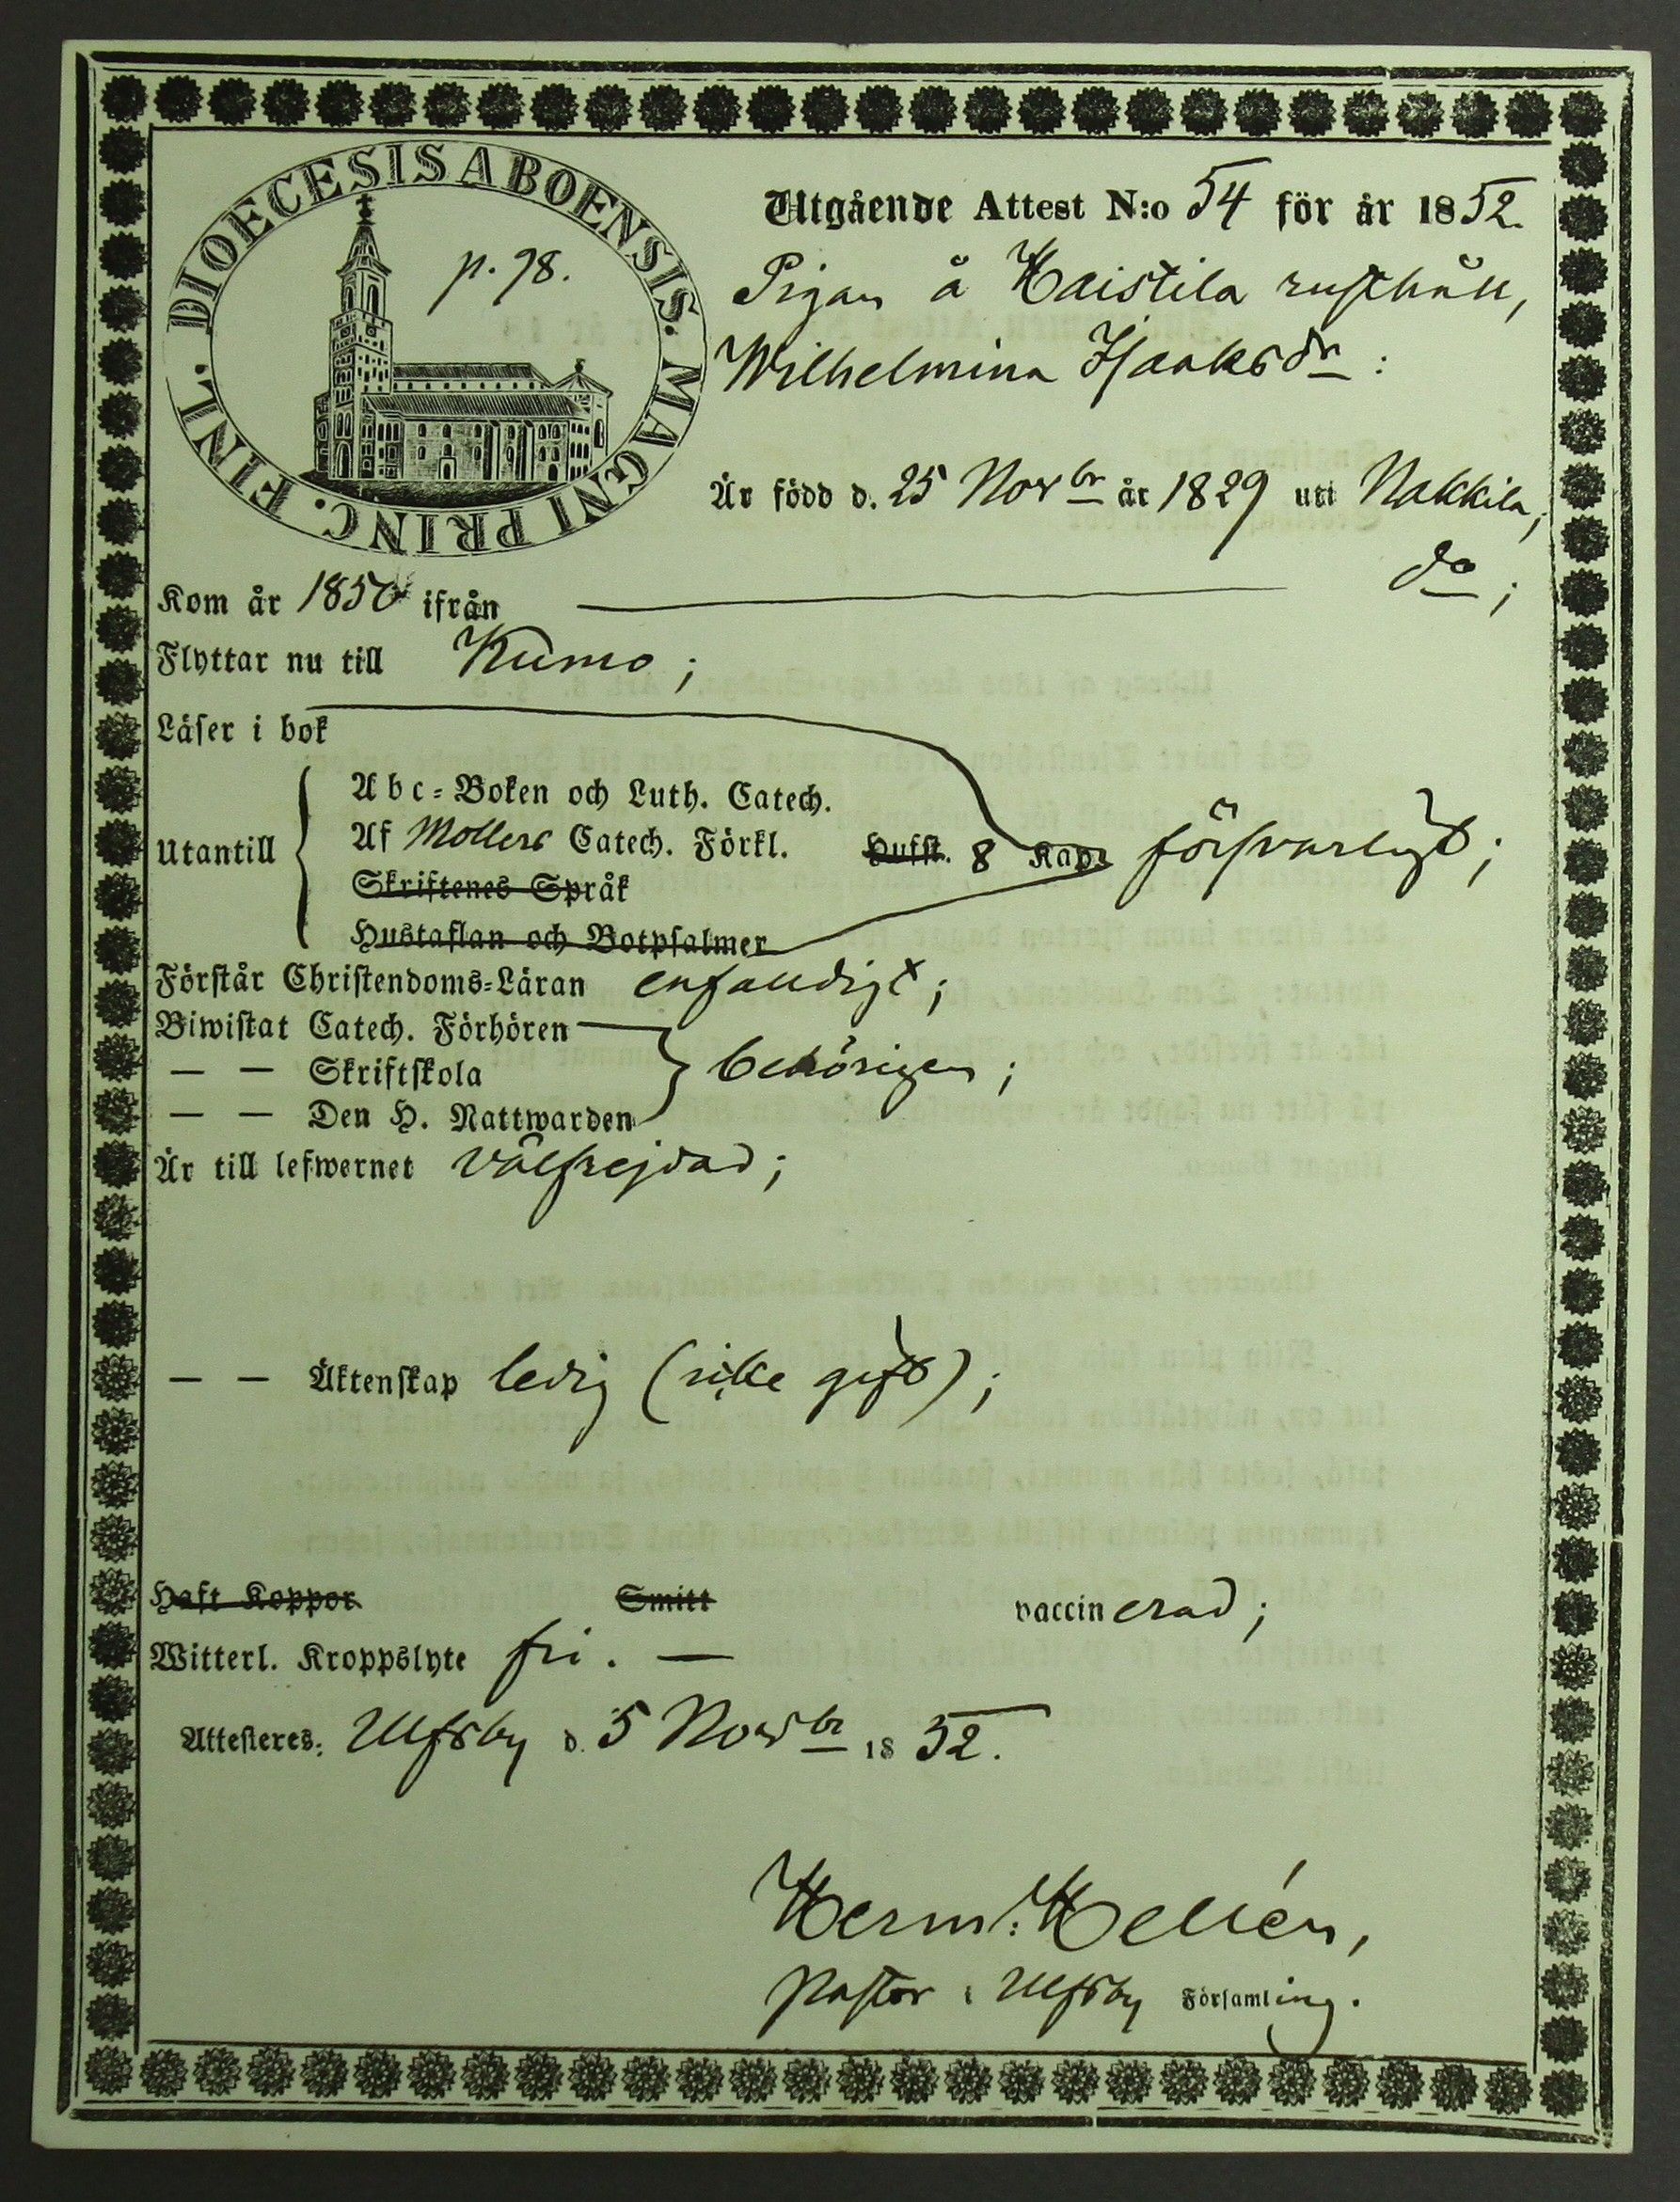 DIOECESIS ABOENSIS. MAGNI PRINC. FINL.
p. 98.
Utgående Attest N:o 54 för år 1852.
Pigan å Haistila rusthåll,
Wilhelmina Isaaksdr:
Är född d. 25 Novbr år 1829 uti Nakkila,
Kom år 1850 ifrån do;
Flyttar nu till Kumo;
Läser i bok
Abc-Boken och Luth. Catech.
Utantill Af Mollers Catech. Förkl. Hufst. 8 Kap. försvarligt;
Skriftenes Språk
Hustaflan och Botpsalmer
Förstår Christendoms-Läran enfaldigt;
Biwistat Catech. Förhören
— — Skriftskola behörigen;
— — Den H. Nattwarden
Är till lefwernet välfrejdad;
— — Äktenskap ledig (icke gift);
Haft Koppor Smitt vaccinerad;
Witterl. Kroppslyte fri. —
Attesteres: Ulfsby d. 5 Novbr 1852.
Herm: Hellén,
Pastor i Ulfsby Församling.